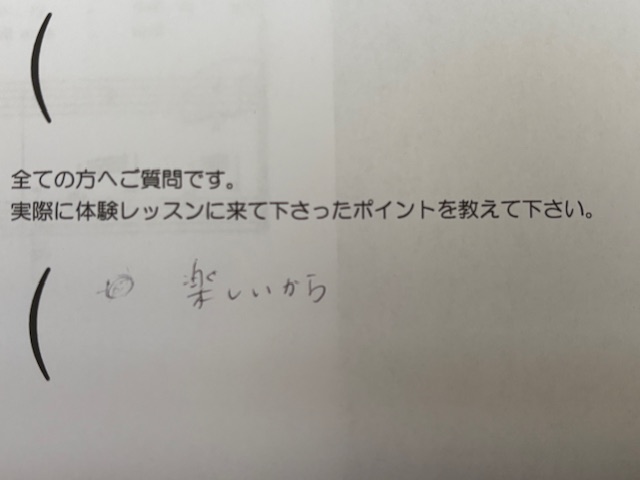 (
全ての方へご質問です。
実際に体験レッスンに来て下さったポイントを教えて下さい。
( 楽しいから